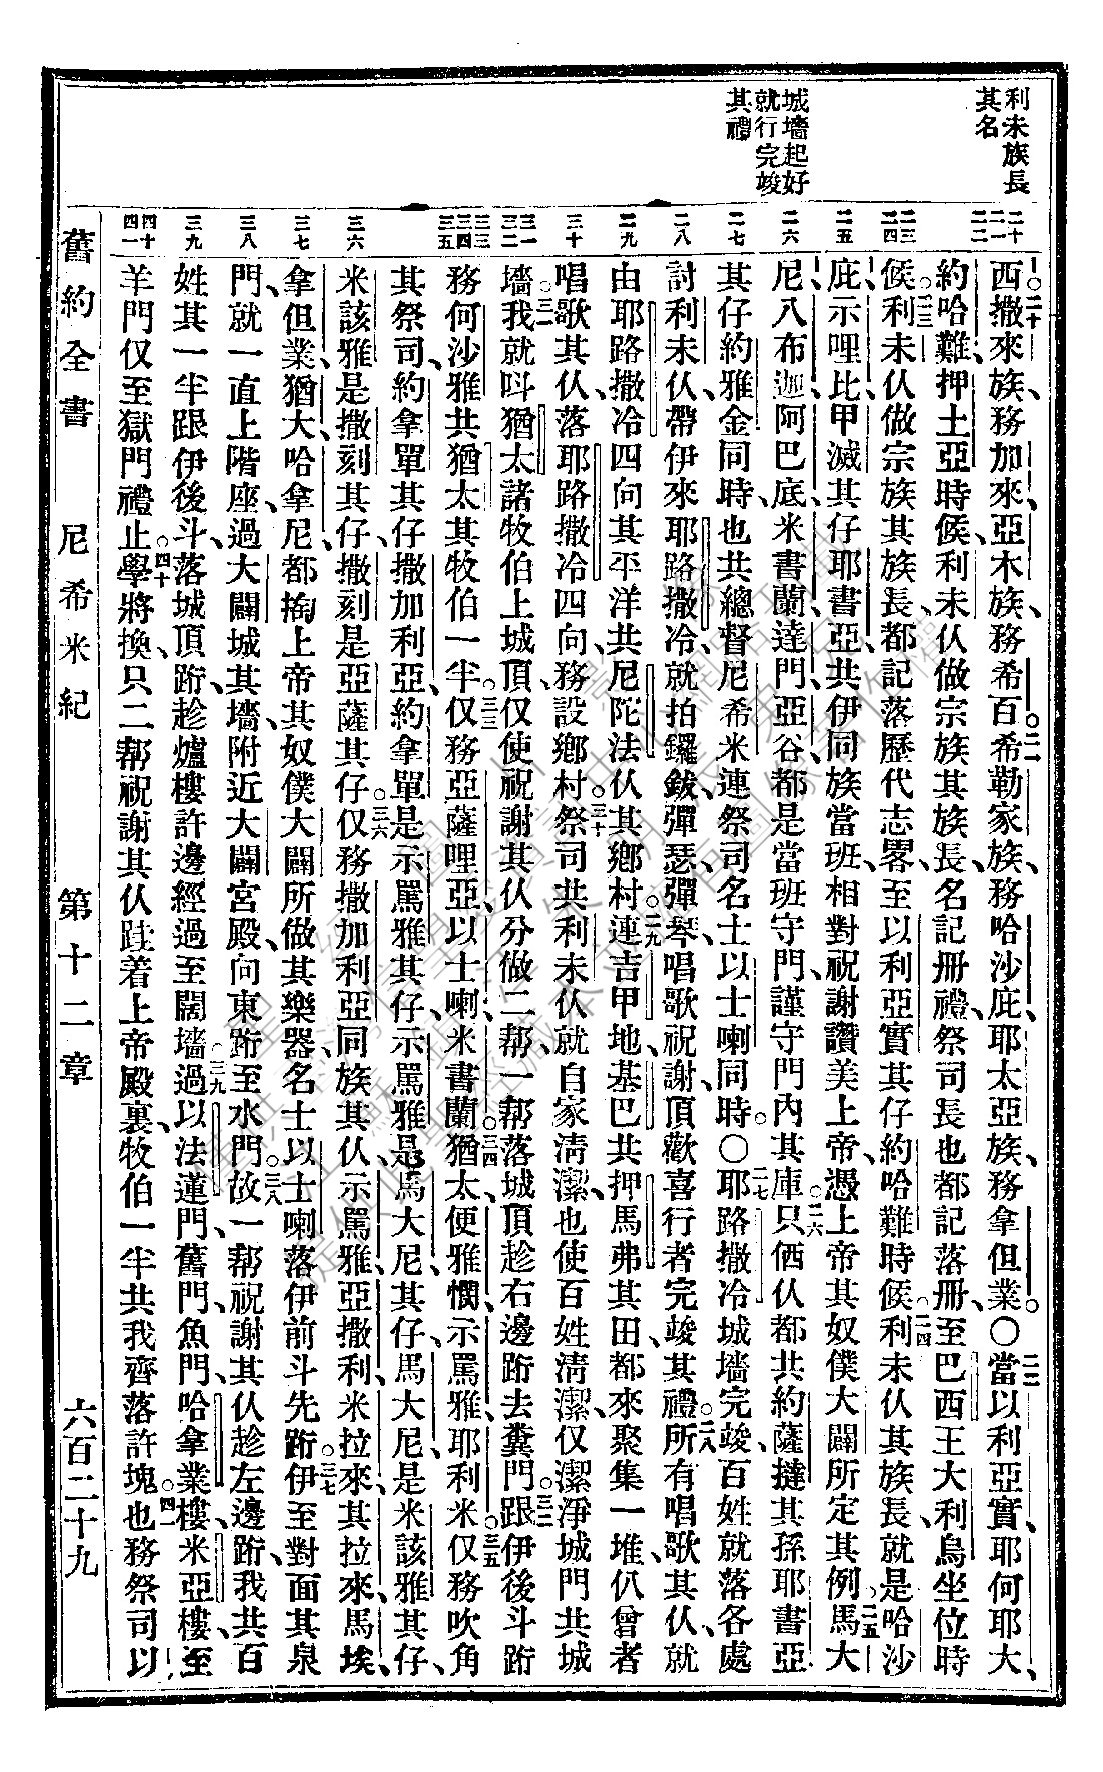 利未族長
其名
城墻起好
就行完竣
其禮
二十
二一
二二
二三
二四
二五
二六
二七
二八
二九
三十
三一
三二
三三
三四
三五
三六
三七
三八
三九
四十
四一
西撒來族、務加來、亞木族、務希百希勒家族、務哈沙庇耶太亞族、務拿但業。〇當以利亞實、耶何耶大、
約哈難、押土亞時候、利未仈做宗族其族長、名記册禮、祭司長也都記落册、至巴西王大利烏坐位時
候。利未仈做宗族其族長、都記落歷代志畧、至以利亞實其仔約哈難時候。利未仈其族長、就是哈沙
庇、示哩比、甲滅其仔耶書亞、共伊同族當班相對祝謝讚美上帝、憑上帝其奴僕大闢所定其例。馬大
尼、八布迦、阿巴底、米書蘭、達門、亞谷、都是當班守門、謹守門內其庫。只個仈都共約薩撻其孫耶書亞
其仔約雅金同時、也共總督尼希米連祭司名士以士喇同時。〇耶路撒冷城墻完竣、百姓就落各處
討利未仈、帶伊來耶路撒冷、就拍鑼鈸、彈瑟、彈琴、唱歌祝謝、頂歡喜行者完竣其禮。所有唱歌其仈、就
由耶路撒冷四向其平洋、共尼陀法仈其鄉村。連吉甲地、基巴共押馬弗其田、都來聚集一堆、仈曾者
唱歌其仈、落耶路撒冷四向、務設鄉村。祭司共利未仈、就自家淸潔、也使百姓淸潔、仅潔淨城門共城
墻。我就呌猶太諸牧伯上城頂、仅使祝謝其仈分做二帮、一帮落城頂趁右邊跕去糞門。跟伊後斗跕
務何沙雅、共猶太其牧伯一半。仅務亞薩哩亞、以士喇、米書蘭。猶太、便雅憫、示罵雅、耶利米。仅務吹角
其祭司、約拿單其仔撒加利亞、約拿單是示罵雅其仔、示罵雅是馬大尼其仔、馬大尼是米該雅其仔、
米該雅是撒刻其仔、撒刻是亞薩其仔。仅務撒加利亞同族其仈、示罵雅、亞撒利、米拉來、其拉來、馬埃、
拿但業、猶大、哈拿尼、都掏上帝其奴僕大闢所做其樂器、名士以士喇落伊前斗先跕。伊至對面其泉
門、就一直上階座、過大闢城其墻附近大闢宮殿、向東跕至水門。故一帮祝謝其仈趁左邊跕、我共百
姓其一半跟伊後斗、落城頂、跕趁爐樓許邊經過至闊墻。過以法蓮門、舊門、魚門、哈拿業樓、米亞樓、至
羊門、仅至獄門禮止。學將換只二帮祝謝其仈跬着上帝殿裏、牧伯一半共我齊落許塊。也務祭司以
舊約全書　尼希米紀　第十二章　六百二十九